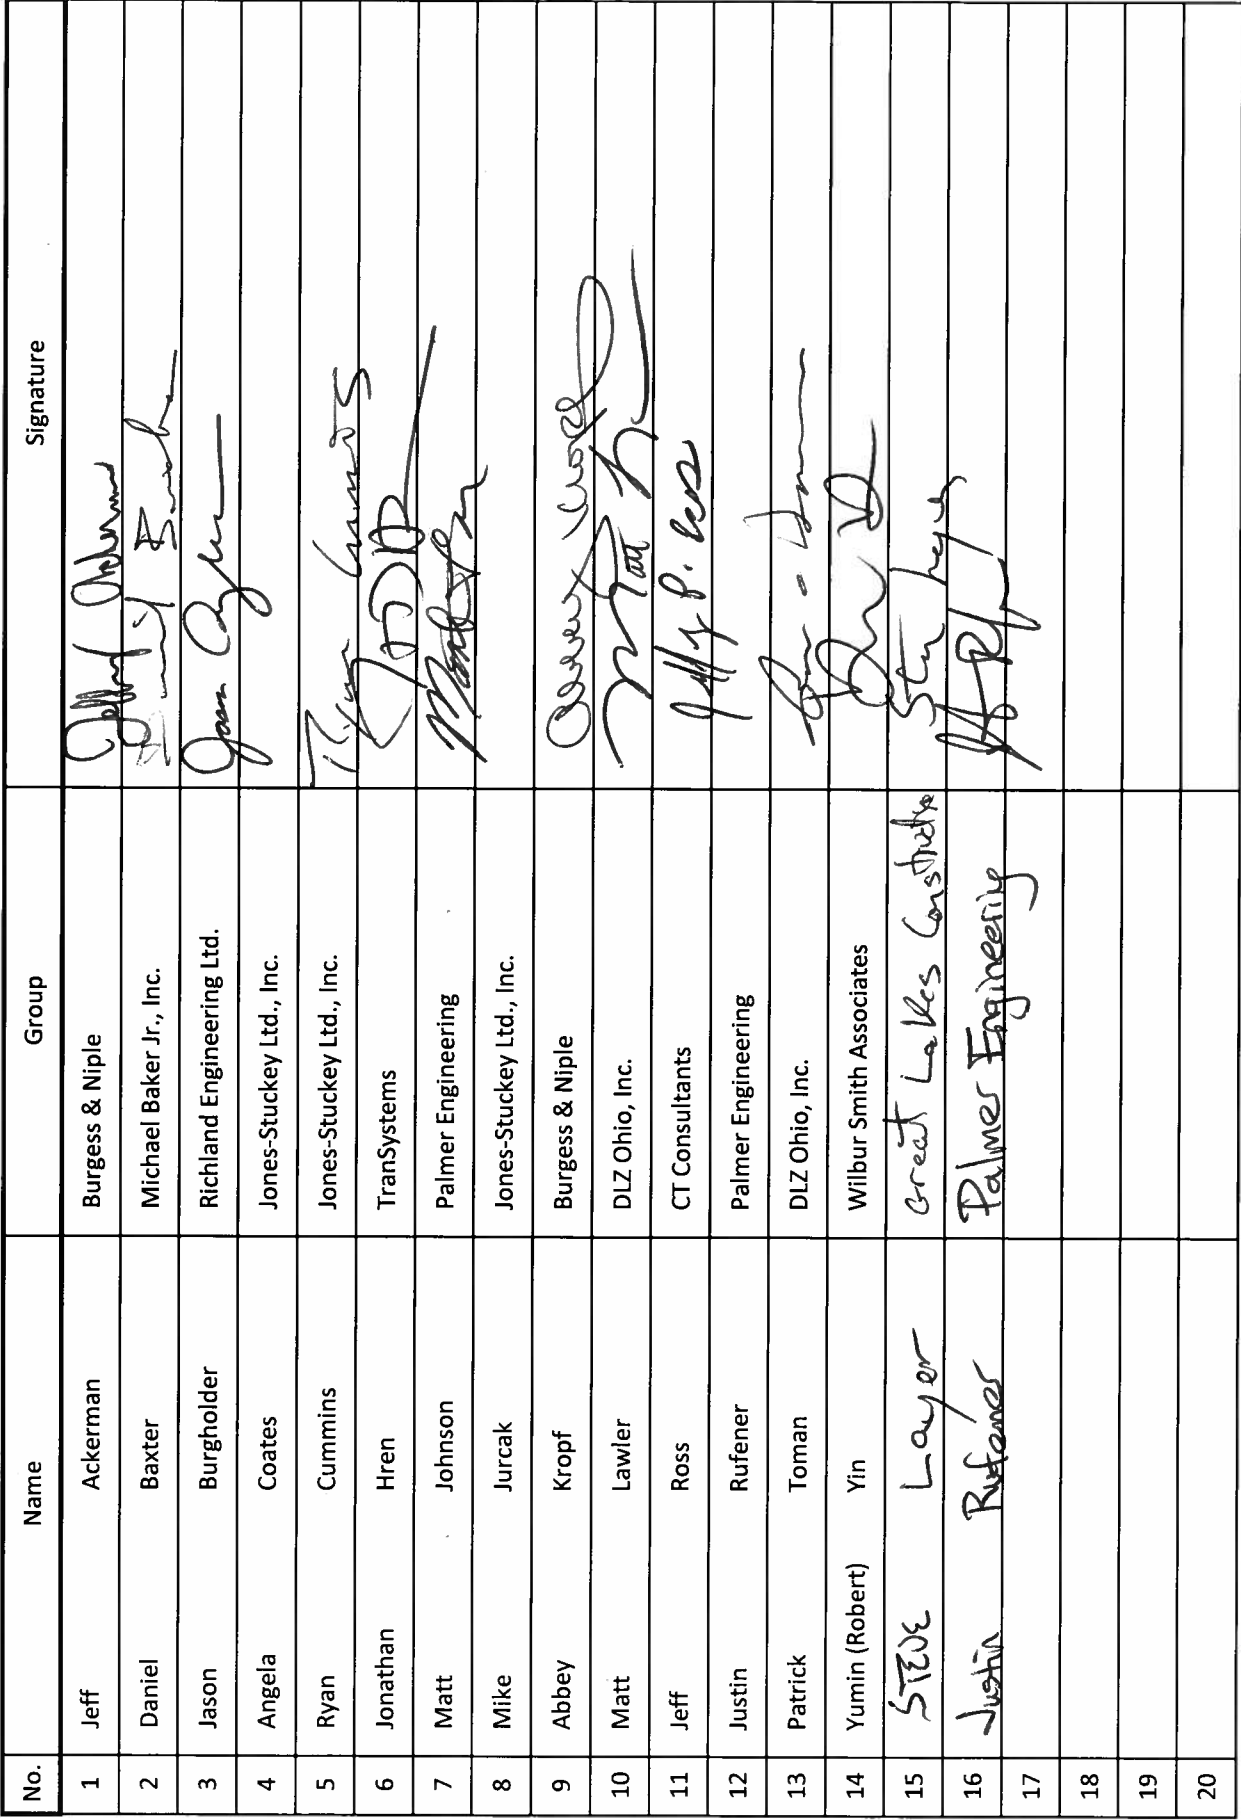 No. Name Group Signature
1 Jeff Ackerman Burgess & Niple
2 Daniel Baxter Michael Baker Jr., Inc.
3 Jason Burgholder Richland Engineering Ltd.
4 Angela Coates Jones-Stuckey Ltd., Inc.
5 Ryan Cummins Jones-Stuckey Ltd., Inc. Ryan Cummins
6 Jonathan Hren TranSystems
7 Matt Johnson Palmer Engineering
8 Mike Jurcak Jones-Stuckey Ltd., Inc.
9 Abbey Kropf Burgess & Niple Abbey Kropf
10 Matt Lawler DLZ Ohio, Inc.
11 Jeff Ross CT Consultants
12 Justin Rufener Palmer Engineering
13 Patrick Toman DLZ Ohio, Inc.
14 Yumin (Robert) Yin Wilbur Smith Associates
15 STEVE Layer Great Lakes
16 Justin Rufener Palmer Engineering
17
18
19
20